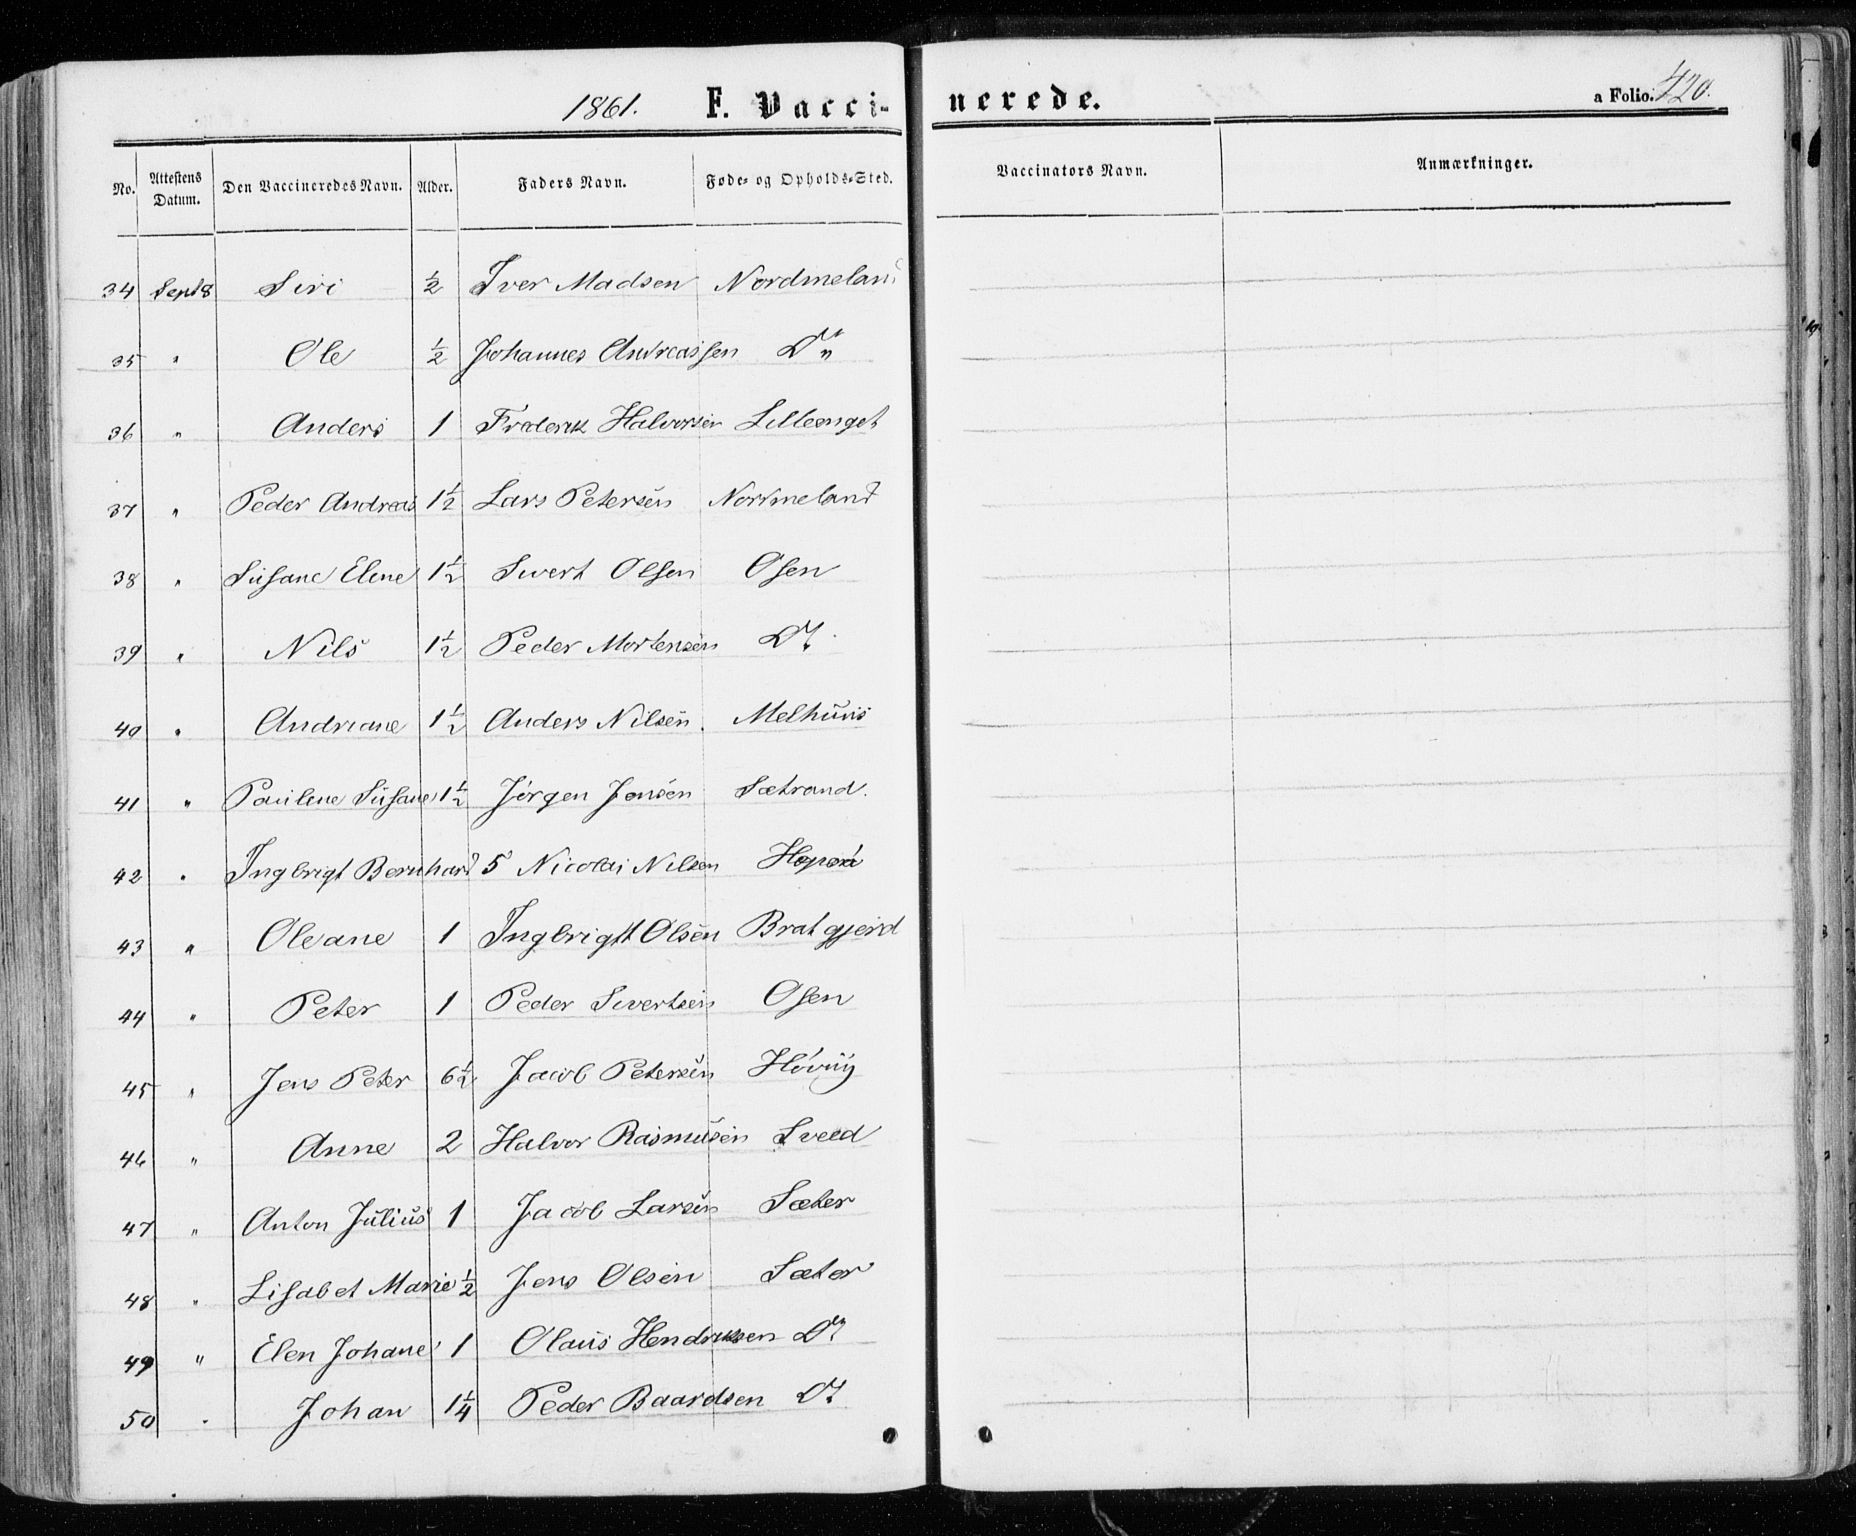 1861. F. Vacci- nerede. a Folio. 420.
No. Attestens Datum. Den Vaccineredes Navn. Alder. Faders Navn. Føde- og Opholds-Sted. Vaccinators Navn. Anmærkninger.
34 Sept 8 Siri ½ Iver Madsen Nordmeland
35 " Ole ½ Johannes Andreassen Do
36 " Anders 1 Frederik Halvorsen Lilleenget
37 " Peder Andreas 1½ Lars Petersen Nordmeland
38 " Susane Elene 1½ Sivert Olsen Osen
39 " Nils 1½ Peder Mortensen Do
40 " Andriane 1½ Anders Nilsen Melhuus
41 " Pauline Susane 1½ Jörgen Jensen Sætrand.
42 " Ingbrigt Bernhard 5 Nicolai Nilsen
43 " Oleane 1 Ingbrigtt Olsen Bratgjerd
44 " Peter 1 Peder Sivertsen Osen
45 " Jens Peter 6½ Jacob Petersen
46 " Anne 2 Halvor Rasmusen Sveed
47 " Anton Julius 1 Jacob Larsen Sæter
48 " Lisabet Marie ½ Jens Olsen Sæter
49 " Elen Johane 1 Olaus Hendriksen Do
50 " Johan 1¼ Peder Baardsen Do